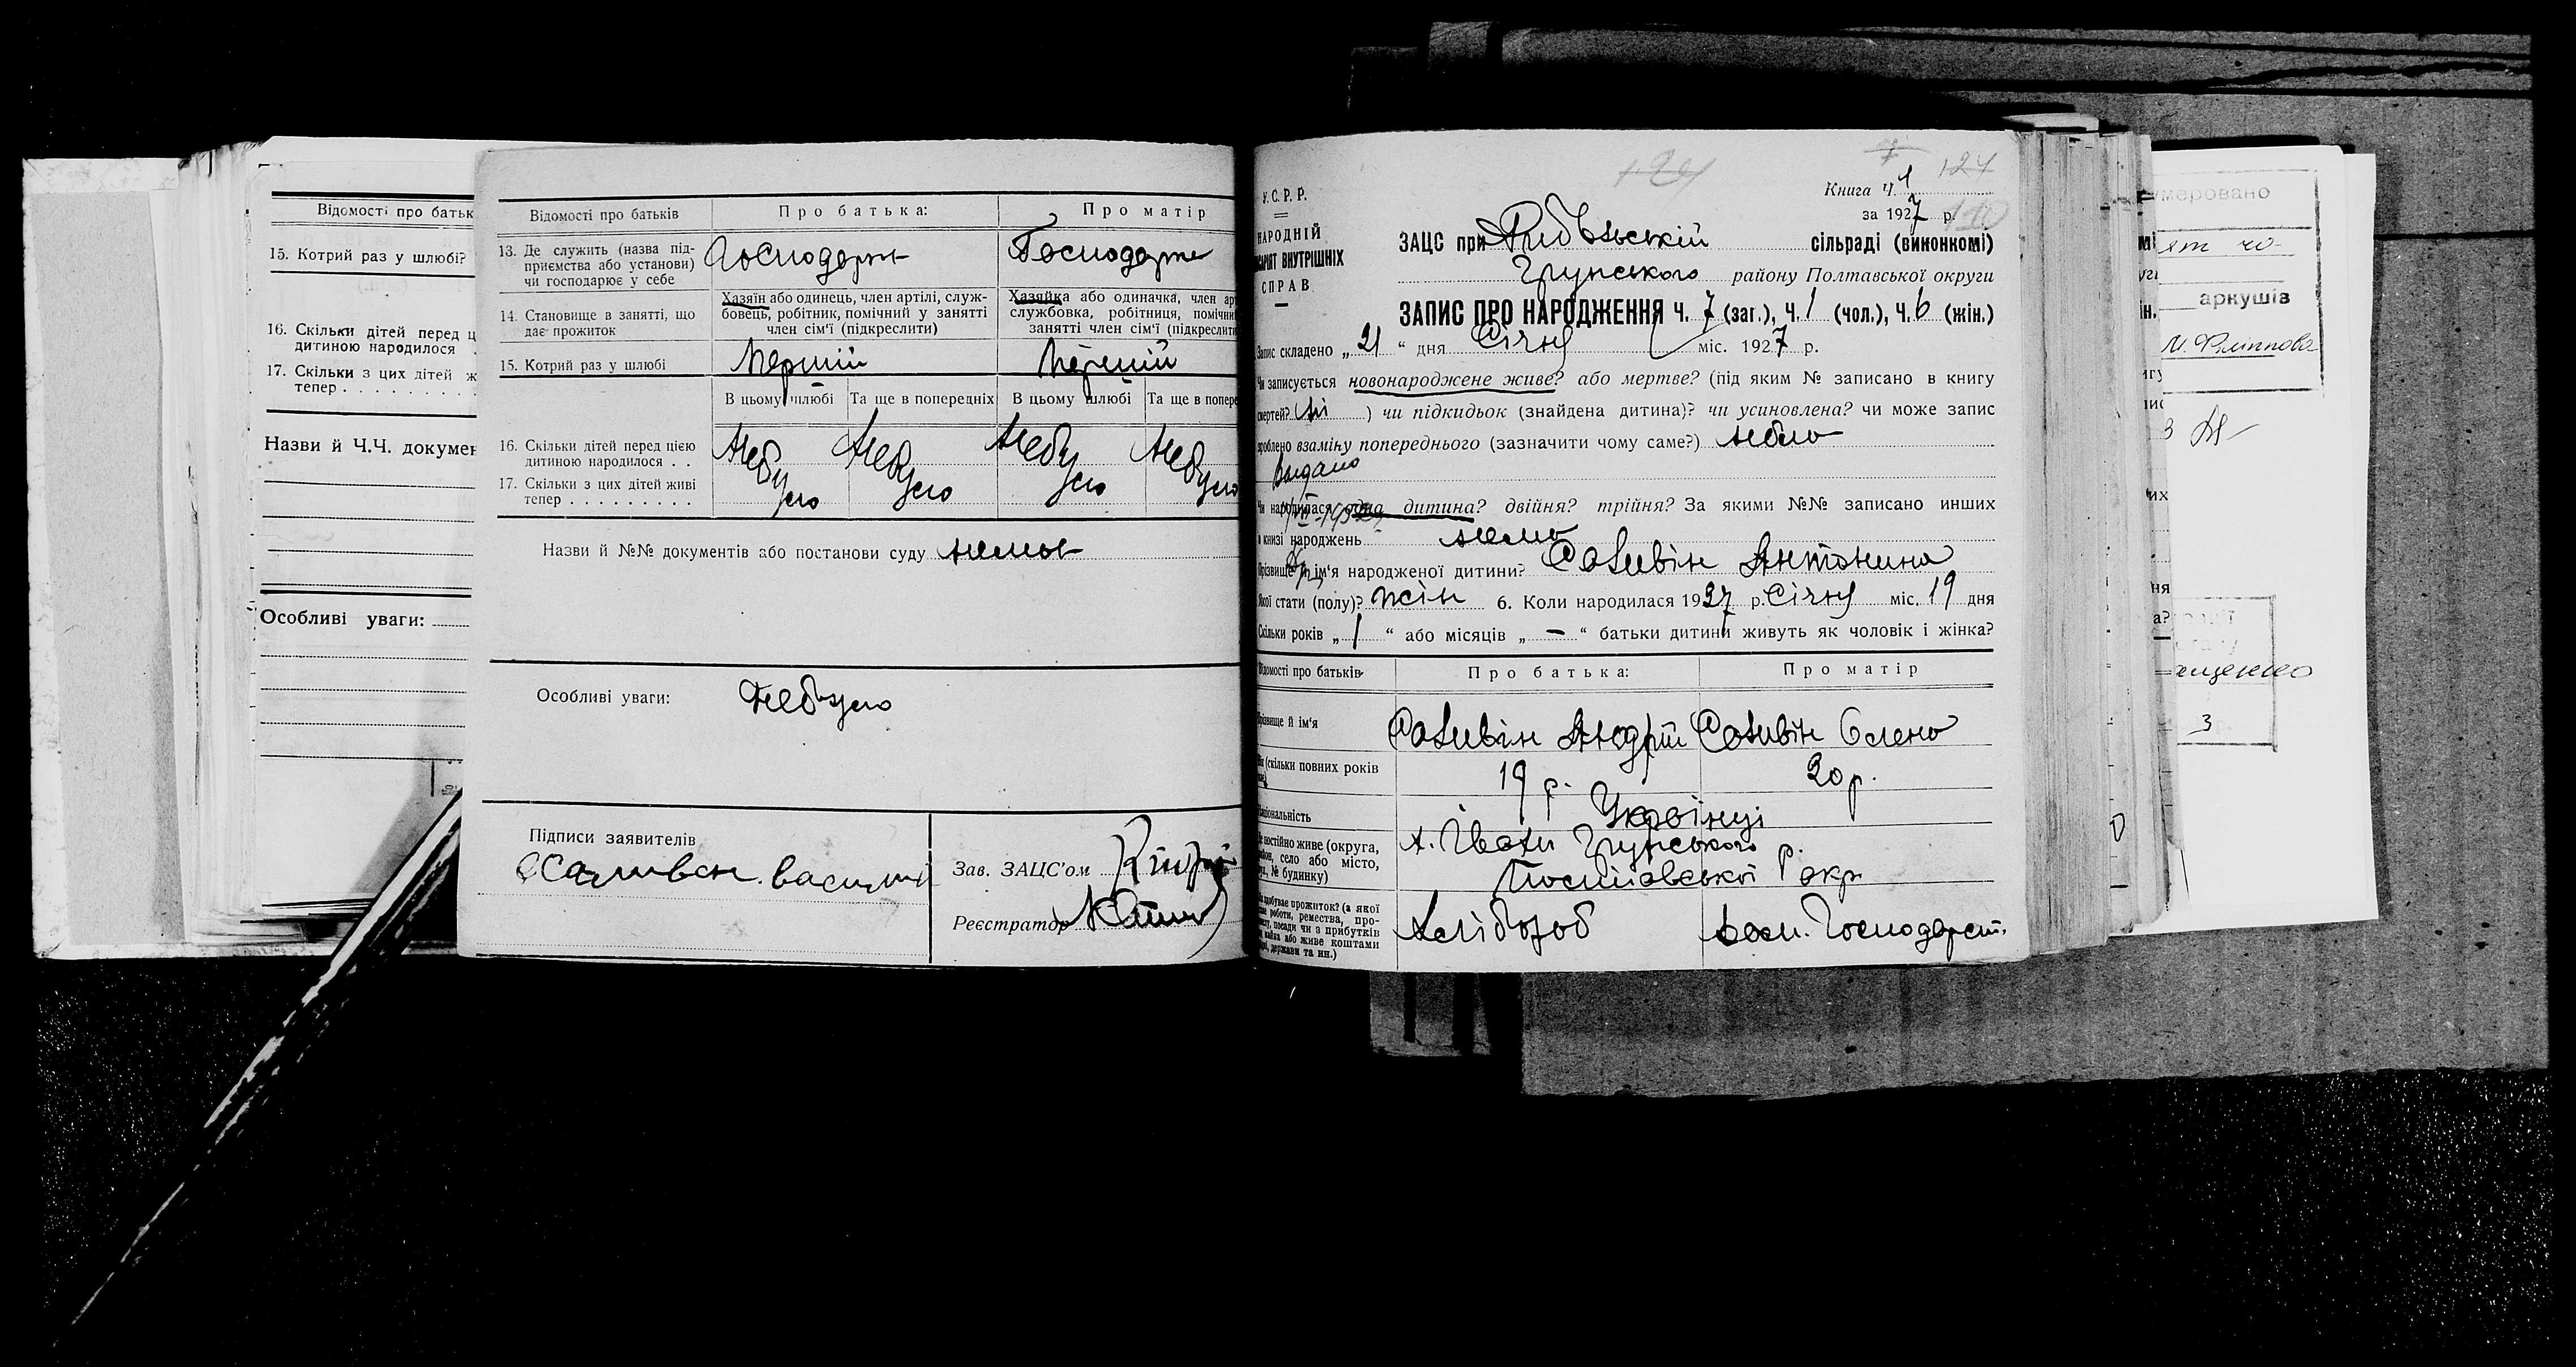 Відомості про батьк
15. Котрий раз у шлюбі?
16. Скільки дітей перед ц
дитиною народилося .
17. Скільки з цих дітей ж
тепер . . . . . . . . .
Назви й Ч.Ч. докумен
Особливі уваги:
Відомості про батьків
Про батька:
Про матір
13. Де служить (назва під-
приємства або установи)
чи господарює у себе
Господарює
Господарює
14. Становище в занятті, що
дає прожиток
Хазяїн або одинець, член артілі, служ-
бовець, робітник, помічний у занятті
член сім'ї (підкреслити)
Хазяйка або одиначка, член ар
службовка, робітниця, помічни
занятті член сім'ї (підкреслити
15. Котрий раз у шлюбі
Перший
Перший
В цьому шлюбі
Та ще в попередніх
В цьому шлюбі
Та ще в попере
16. Скільки дітей перед цією
дитиною народилося . .
17. Скільки з цих дітей живі
тепер . . . . . . . . . .
Небуло
Небуло
Небуло
Небуло
Назви й №№ документів або постанови суду нема
Особливі уваги: Небуло
Підписи заявителів
Василь
Зав. ЗАЦС'ом
Реєстратор
124
Книга Ч. 1
за 1927 р.
110
У.С.Р.Р.
НАРОДНІЙ
САРІЯТ ВНУТРІШНІХ
СПРАВ
ЗАЦС при сільраді (виконкомі)
Грунського району Полтавської округи
ЗАПИС ПРО НАРОДЖЕННЯ Ч. 7 (заг.), Ч. 1 (чол.), Ч. 6 (жін.)
Запис складено „ 21 “ дня Січня міс. 1927 р.
Чи записується новонароджене живе? або мертве? (під яким № записано в книгу
смертей? Ні ) чи підкидьок (знайдена дитина)? чи усиновлена? чи може запис
зроблено взаміну попереднього (зазначити чому саме?)
Видано
Чи народилася одна дитина? двійня? трійня? За якими №№ записано инших
в книзі народжень нема
Прізвище й ім'я народженої дитини? Саливін Антонина
Якої стати (полу)? жін 6. Коли народилася 1927 р. Січня міс. 19 дня
Скільки років „ 1 “ або місяців „ — “ батьки дитини живуть як чоловік і жінка?
Відомості про батьків
Про батька:
Про матір
Прізвище й ім'я
Саливін Андрій
Саливін Олена
Вік (скільки повних років
19 р.
20 р.
Національність
Українці
Де постійно живе (округа,
район, село або місто,
вул., № будинку)
х. Івахи Грунського р.
Полтавської окр.
здобуває прожиток? (з якої
саме роботи, ремества, про-
мислу, посади чи з прибутків
майна або живе коштами
держави та ин.)
Хлібороб
Господарст.
умеровано
аркушів
М. Філіппова
3